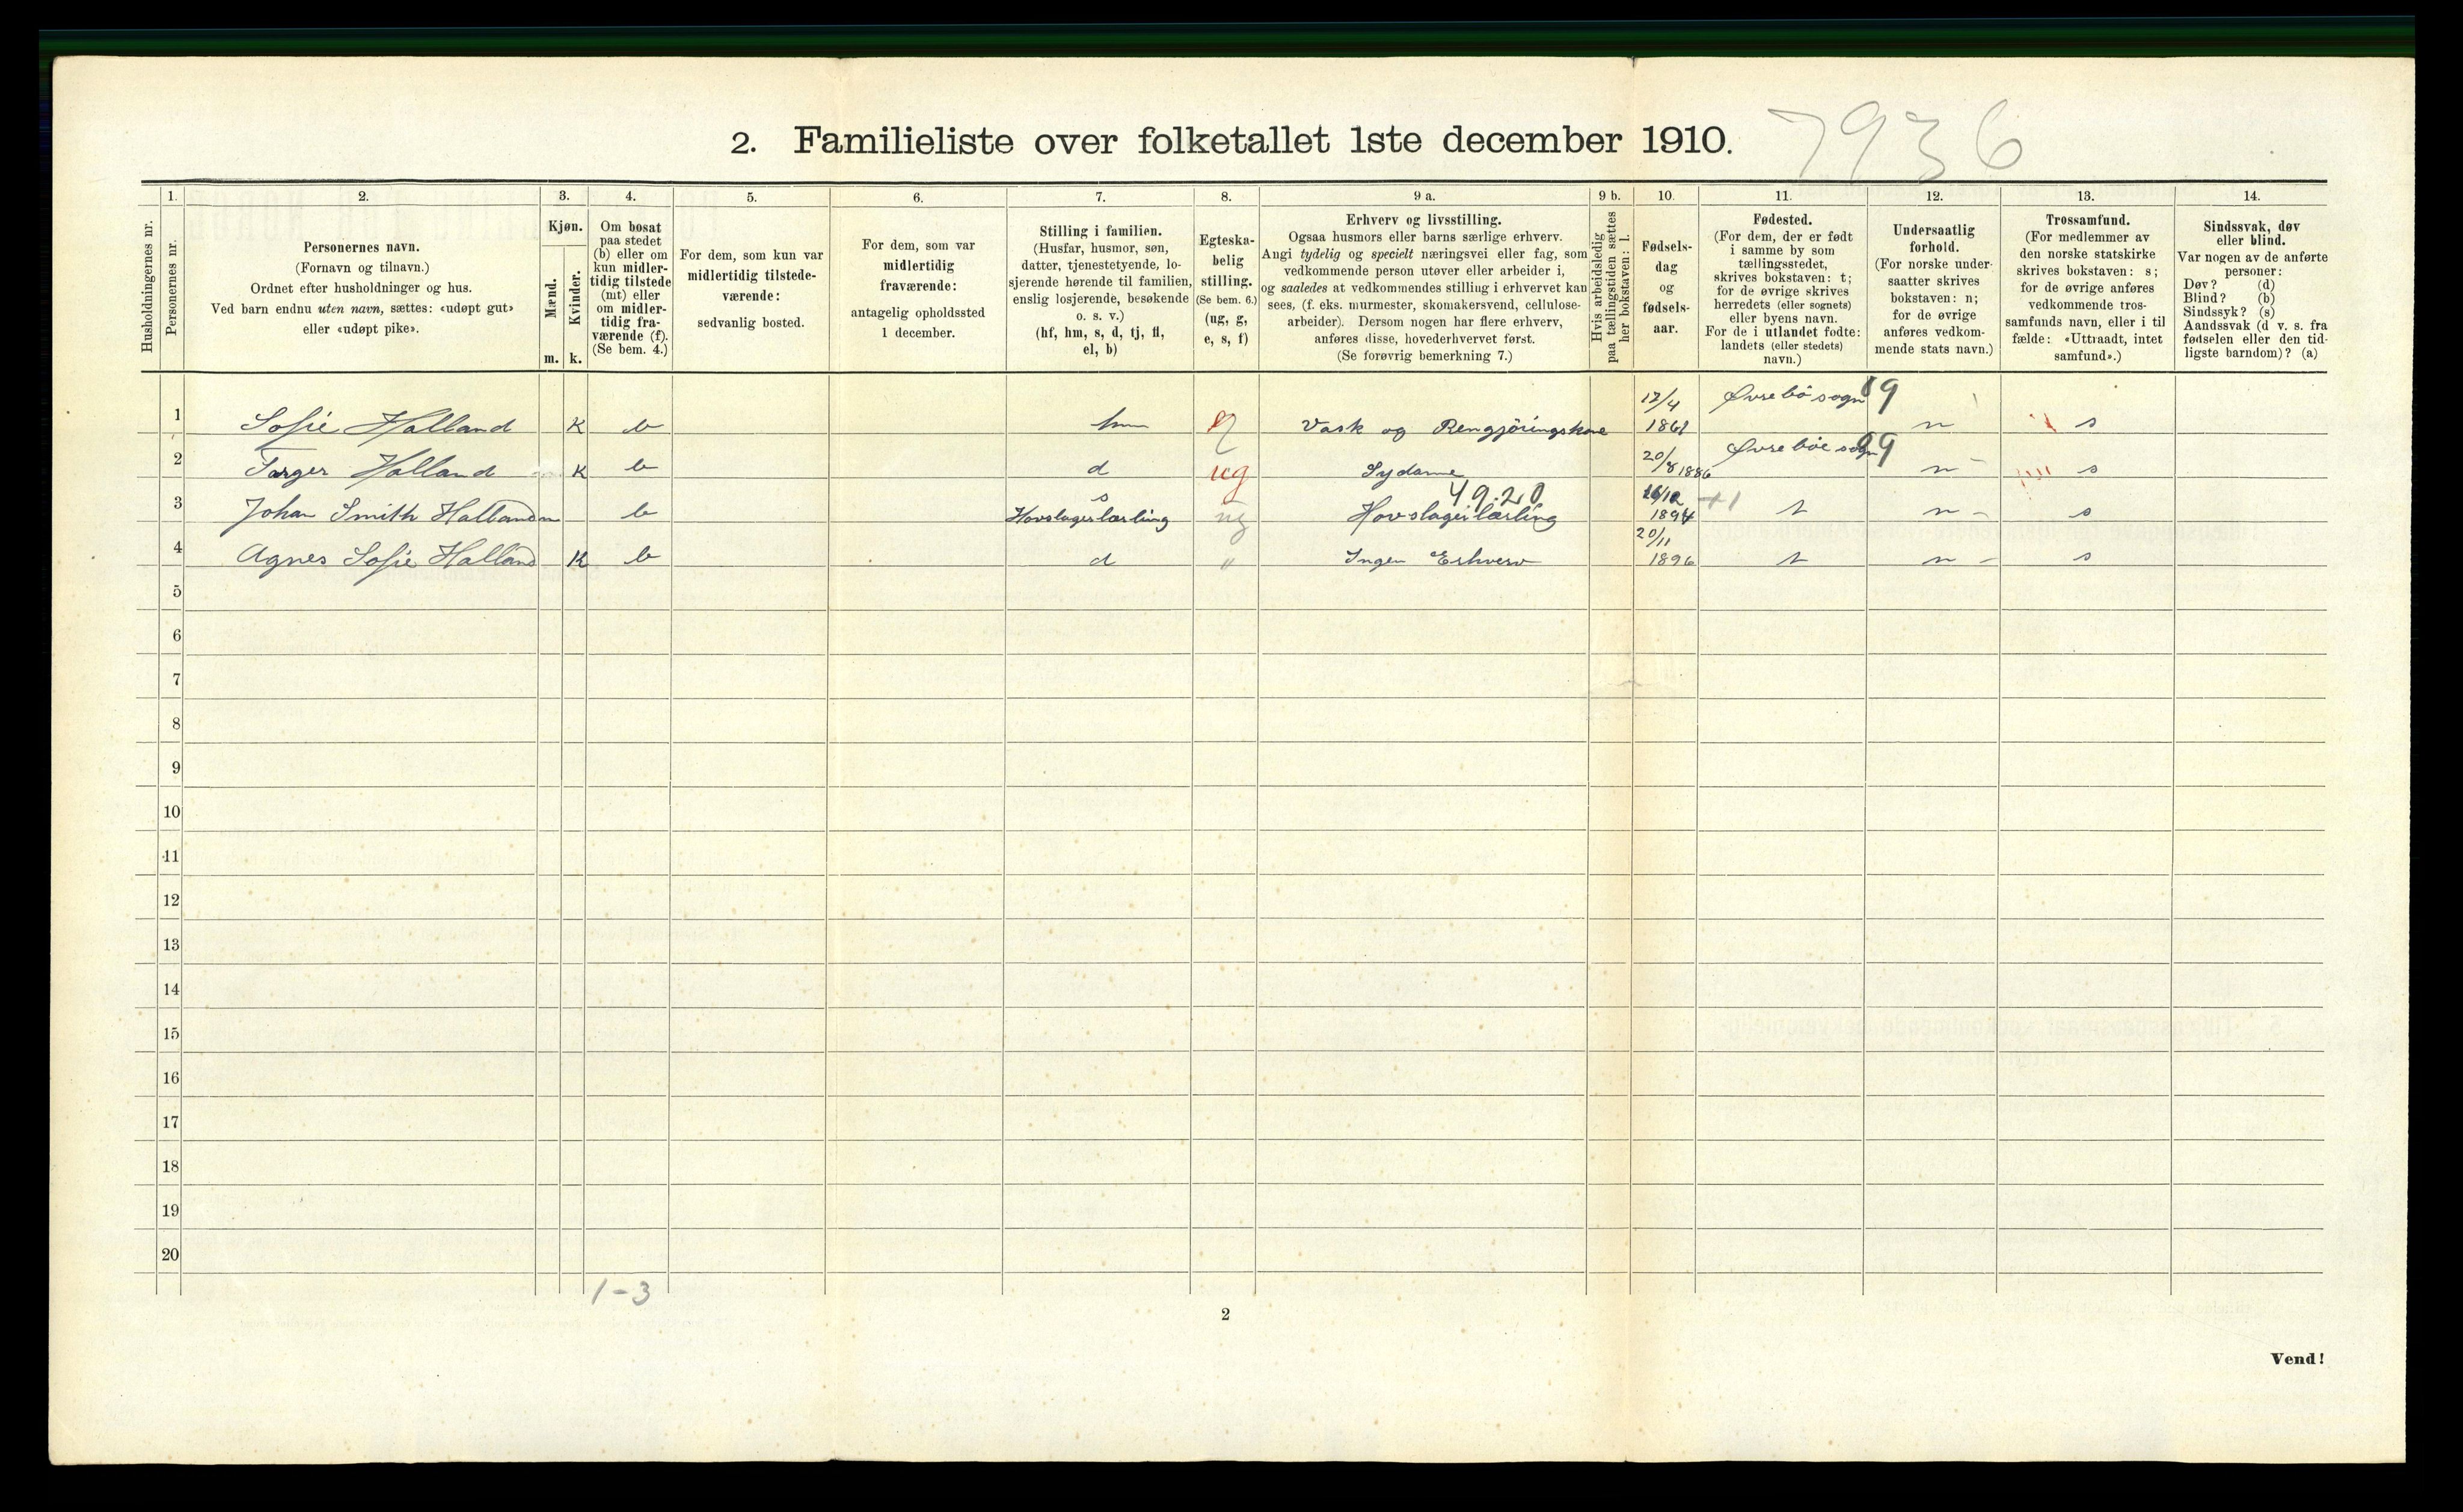 7936
2. Familieliste over folketallet 1ste december 1910.
1. 2. 3. 4. 5. 6. 7. 8. 9 a. 9 b. 10. 11. 12. 13. 14.
Husholdningernes nr.
Personernes nr.
Personernes navn.
(Fornavn og tilnavn.)
Ordnet efter husholdninger og hus.
Ved barn endnu uten navn, sættes: «udøpt gut»
eller «udøpt pike».
Kjøn.
Mænd.
m.
Kvinder.
k.
Om bosat
paa stedet
(b) eller om
kun midler-
tidig tilstede
(mt) eller
om midler-
tidig fra-
værende (f).
(Se bem. 4.)
For dem, som kun var
midlertidig tilstede-
værende:
sedvanlig bosted.
For dem, som var
midlertidig
fraværende:
antagelig opholdssted
1 december.
Stilling i familien.
(Husfar, husmor, søn,
datter, tjenestetyende, lo-
sjerende hørende til familien,
enslig losjerende, besøkende
o. s. v.)
(hf, hm, s, d, tj, fl,
el, b)
Egteska-
belig
stilling.
(Se bem. 6.)
(ug, g,
e, s, f)
Erhverv og livsstilling.
Ogsaa husmors eller barns særlige erhverv.
Angi tydelig og specielt næringsvei eller fag, som
vedkommende person utøver eller arbeider i,
og saaledes at vedkommendes stilling i erhvervet kan
sees, (f. eks. murmester, skomakersvend, cellulose-
arbeider). Dersom nogen har flere erhverv,
anføres disse, hovederhvervet først.
(Se forøvrig bemerkning 7.)
Hvis arbeidsledig
paa tællingstiden sættes
her bokstaven: l.
Fødsels-
dag
og
fødsels-
aar.
Fødested.
(For dem, der er født
i samme by som
tællingsstedet,
skrives bokstaven: t;
for de øvrige skrives
herredets (eller sognets)
eller byens navn.
For de i utlandet fødte:
landets (eller stedets)
navn.)
Undersaatlig
forhold.
(For norske under-
saatter skrives
bokstaven: n;
for de øvrige
anføres vedkom-
mende stats navn.)
Trossamfund.
(For medlemmer av
den norske statskirke
skrives bokstaven: s;
for de øvrige anføres
vedkommende tros-
samfunds navn, eller i til
fælde: «Uttraadt, intet
samfund».)
Sindssvak, døv
eller blind.
Var nogen av de anførte
personer:
Døv? (d)
Blind? (b)
Sindssyk? (s)
Aandssvak (d v. s. fra
fødselen eller den tid-
ligste barndom)? (a)
1 Sofie Holland K b hm Vask og Rengjöringskone 12/4 1861 Øvrebö sogn 9 n s
2 Targer Holland K b d ug Sydame 20/8 1886 Øvreböe sogn 9 n s
3 Johan Smith Holland m b s Hovslagerlærling ug 49.20 Hovslagerlærling 1894 +1 t n s
4 Agnes Sofie Holland K b d " Ingen Erhverv 20/11 1896 t n s
5
6
7
8
9
10
11
12
13
14
15
16
17
18
19
20
1-3
2
Vend!